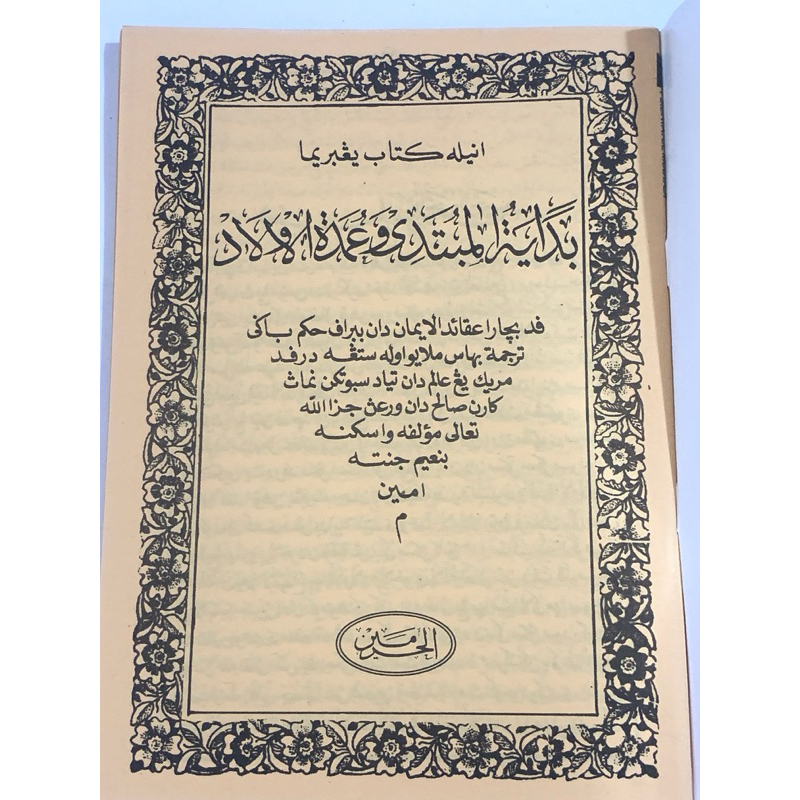 انيله كتاب يڠبرنما
بَدَايَةُ الْمُبْتَدِي وَعُمْدَةُ الْأَوْلَاد
فد بچارا عقائد الايمان دان ببراڤ حكم باݢي
ترجمة بهاس ملايو اوله ستڠه درفد
مريك يڠ عالم دان تياد سبوتكن نماث
كارن صالح دان ورعث جزا الله
تعالى مؤلفه واسكنه
بنعيم جنته
امين
م